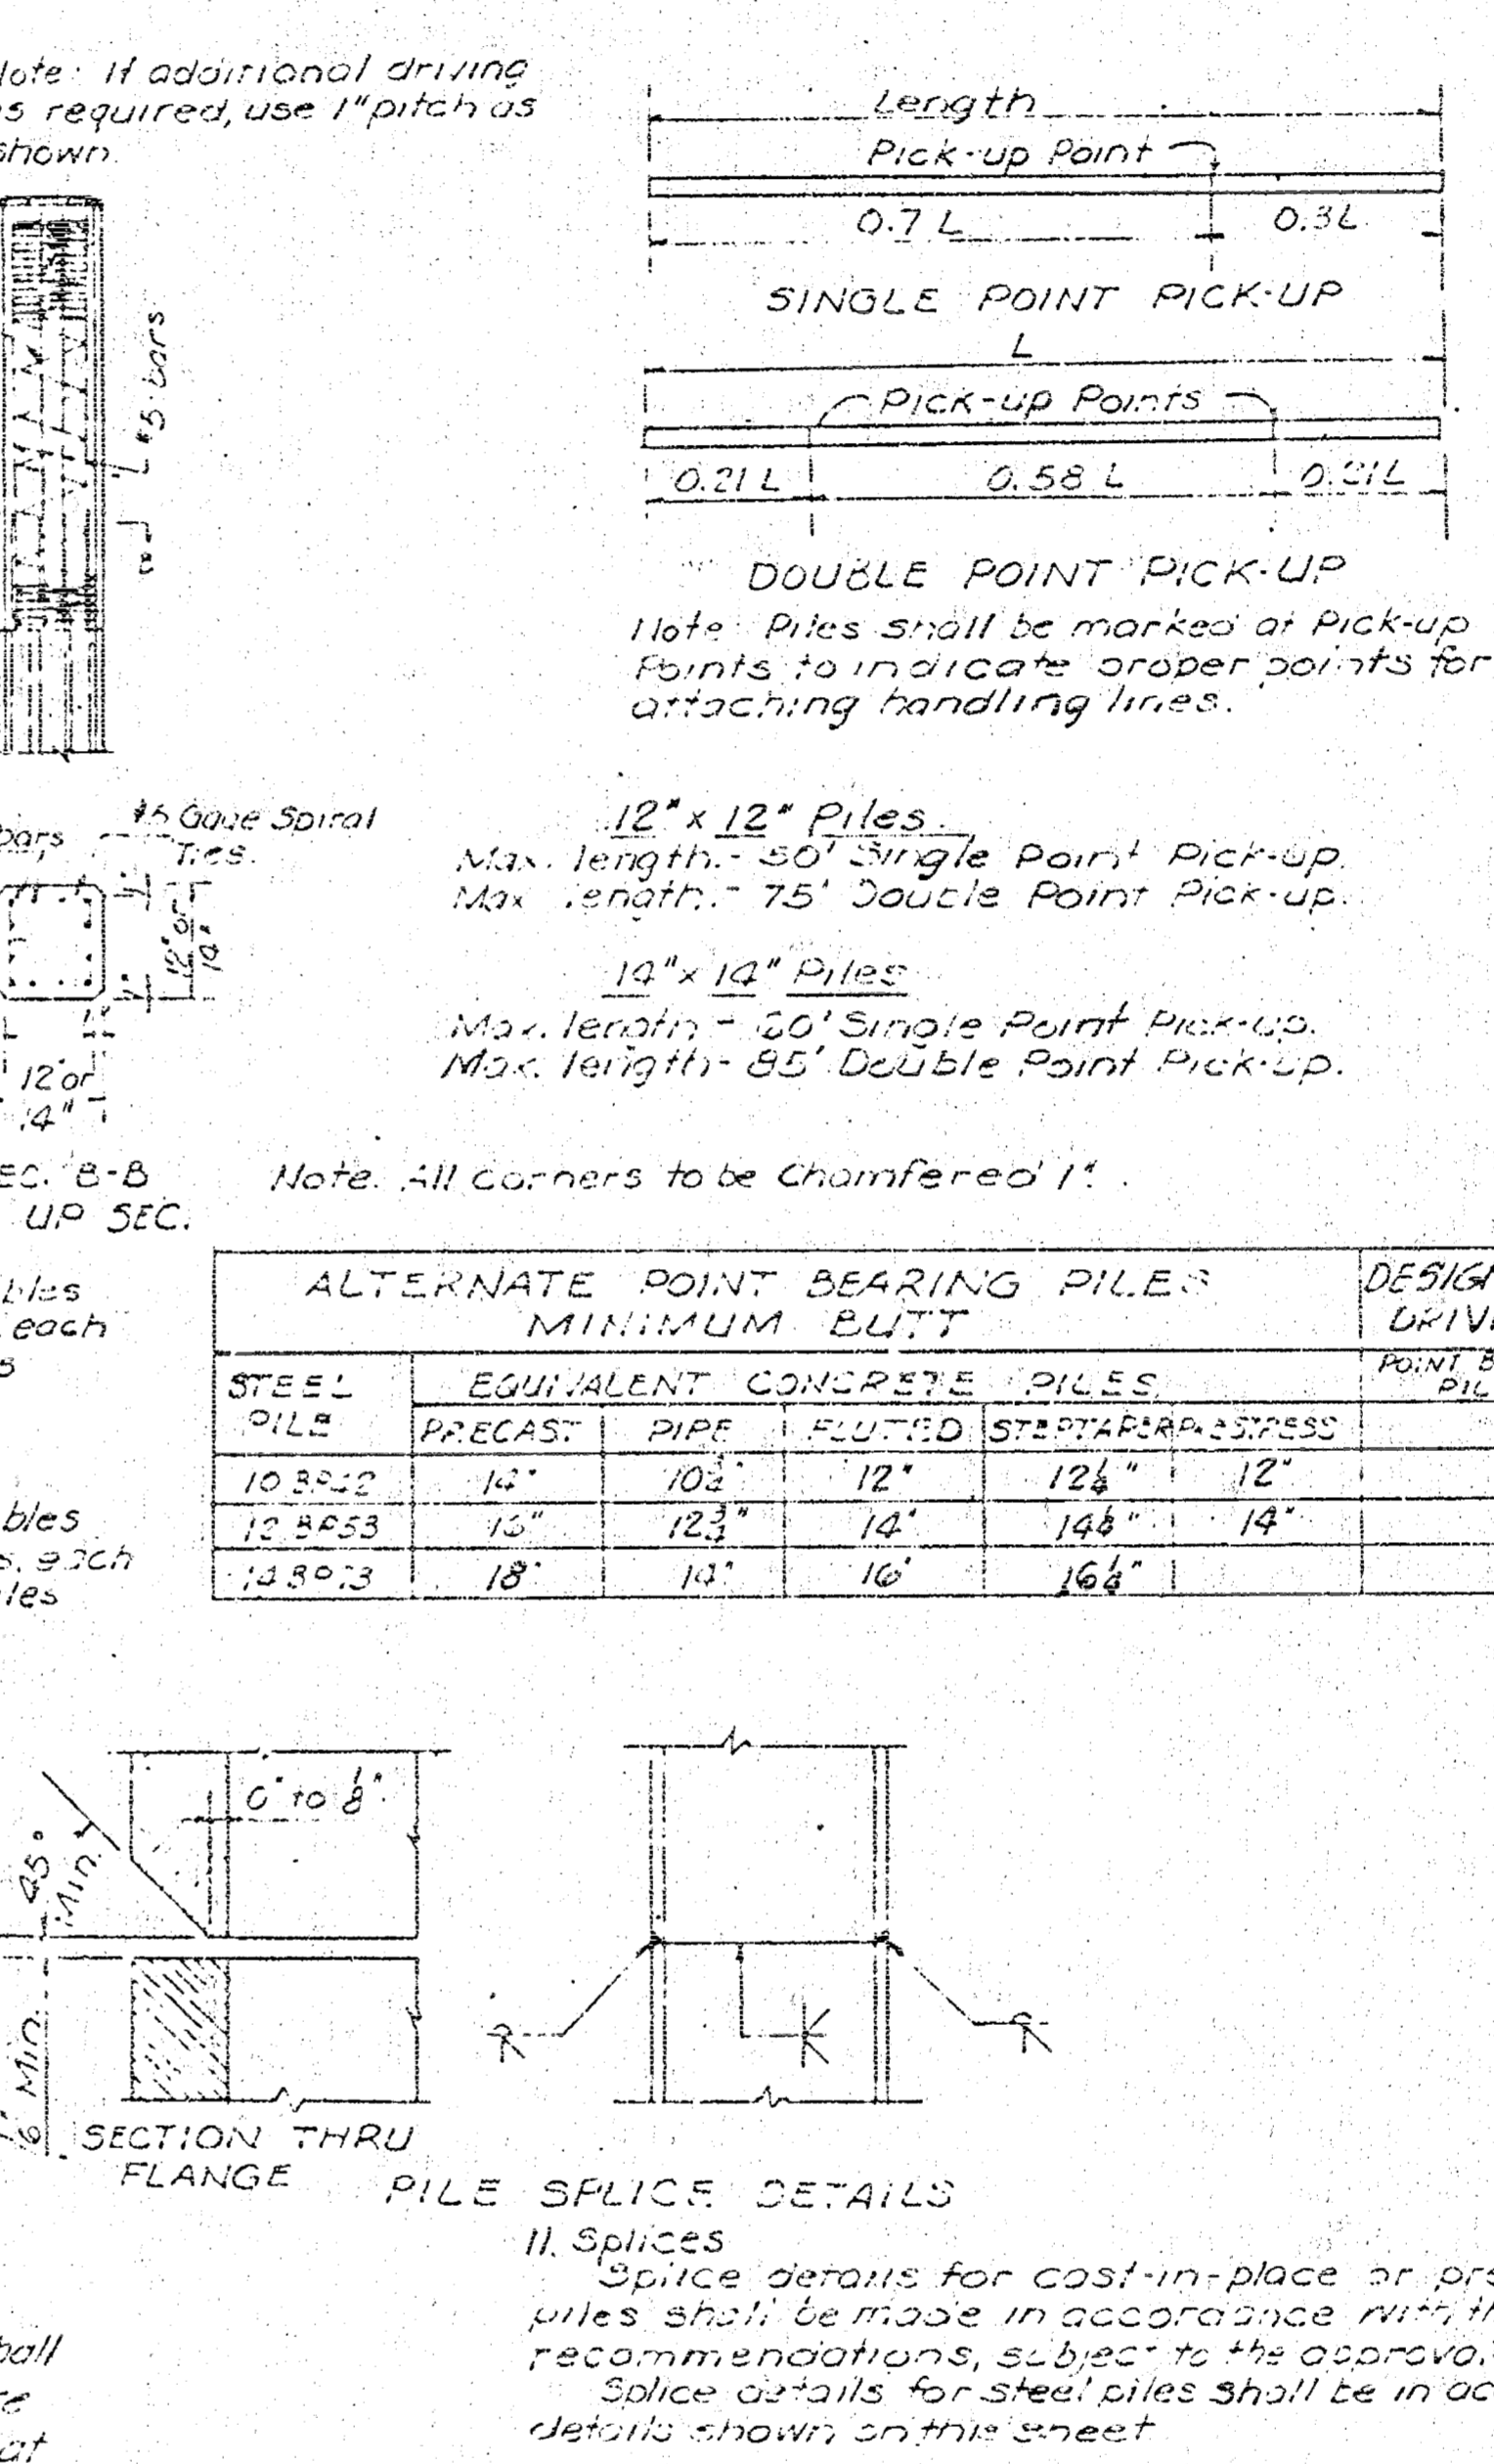 Note: If additional driving
is required, use 1" pitch as
shown.
Length
Pick-up Point
0.7 L 0.3L
SINGLE POINT PICK-UP
L
Pick-up Points
0.21 L 0.58 L 0.21L
DOUBLE POINT PICK-UP
Note: Piles shall be marked at Pick-up
Points to indicate proper points for
attaching handling lines.
#5 bars
B
bars
#5 Gage Spiral
Ties.
12" or
14"
12" or
14"
SEC. B-B
UP SEC.
12" x 12" Piles.
Max. length.- 50' Single Point Pick-up.
Max length.- 75' Double Point Pick-up.
14" x 14" Piles
Max. length - 60' Single Point Pick-up.
Max. length- 85' Double Point Pick-up.
Note. All Corners to be Chamfered 1".
each
each
ALTERNATE POINT BEARING PILES
MINIMUM BUTT
DESIGN
DRIV
POINT B
PIL
STEEL
PILE
EQUIVALENT CONCRETE PILES
PRECAST PIPE FLUTED STEPTAPER PRESTRESS
10 BP42 14" 10¾" 12" 12⅛" 12"
12 BP53 16" 12¾" 14" 14⅛" 14"
14 BP73 18" 14" 16" 16⅛"
0" to ⅛"
45°
Min.
Min.
SECTION THRU
FLANGE
PILE SPLICE DETAILS
11. Splices
Splice details for cast-in-place or
piles shall be made in accordance with
recommendations, subject to the approval
Splice details for steel piles shall be in
details shown on this sheet
at